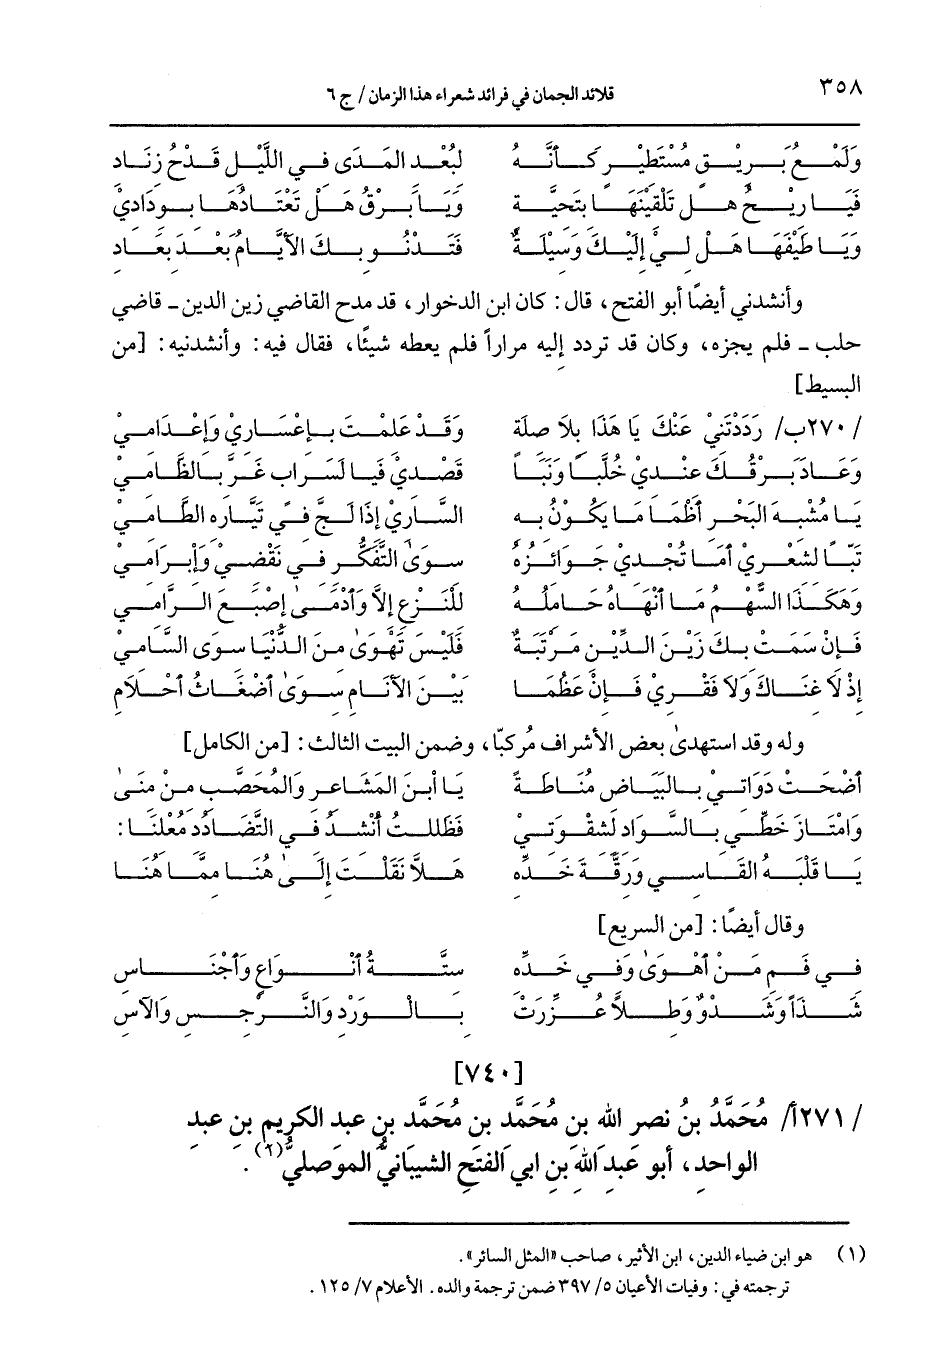 ٣٥٨ قلائد الجمان في فرائد شعراء هذا الزمان / ج ٦
وَلَمْعُ بَرِيْقٍ مُسْتَطِيْرٍ كَأَنَّهُ لِبُعْدِ المَدَى فِي اللَّيْلِ قَدْحُ زِنَادِ
فَيَا رِيْحُ هَلْ تَلْقِيْنَهَا بِتَحِيَّةٍ وَيَا بَرْقُ هَلْ تَعْتَادُهَا بِوِدَادِيْ
وَيَا طَيْفَهَا هَلْ لِيْ إِلَيْكَ وَسِيْلَةٌ فَتَدْنُو بِكَ الأَيَّامُ بَعْدَ بِعَادِ
وأنشدني أيضًا أبو الفتح، قال: كان ابن الدخوار، قد مدح القاضي زين الدين ـ قاضي
حلب ـ فلم يجزه، وكان قد تردد إليه مراراً فلم يعطه شيئًا، فقال فيه: وأنشدنيه: [من
البسيط]
/٢٧٠ب/ رَدَدْتَنِيْ عَنْكَ يَا هَذَا بِلاَ صِلَةٍ وَقَدْ عَلِمْتَ بِإِعْسَارِيْ وَإِعْدَامِيْ
وَعَادَ بَرْقُكَ عِنْدِيْ خُلَّبًا وَنَبَا قَصْدِيْ فَيَا لَسَرَابٍ غَرَّ بِالظَّامِيْ
يَا مُشْبِهَ البَحْرِ أَظْمَا مَا يَكُوْنُ بِهِ السَّارِيْ إِذَا لَجَّ فِيْ تَيَّارِهِ الطَّامِيْ
تَبًّا لِشِعْرِيْ أَمَا تُجْدِيْ جَوَائِزُهُ سِوَىٰ التَّفَكُّرِ فِي نَقْضِيْ وَإِبْرَامِيْ
وَهَكَذَا السَّهْمُ مَا أَنْهَاهُ حَامِلُهُ لِلْنَزْعِ إِلاَّ وَأَدْمَىٰ إِصْبَعَ الرَّامِي
فَإِنْ سَمَتْ بِكَ زَيْنَ الدِّيْنِ مَرْتَبَةٌ فَلَيْسَ تَهْوَىٰ مِنَ الدُّنْيَا سِوَى السَّامِيْ
إِذْ لاَ غِنَاكَ وَلاَ فَقْرِيْ فَإِنْ عَظُمَا بَيْنَ الأَنَامِ سِوَىٰ أَضْغَاثُ أَحْلاَمِ
وله وقد استهدىٰ بعض الأشراف مُركبًا، وضمن البيت الثالث: [من الكامل]
أَضْحَتْ دَوَاتِيْ بِالبَيَاضِ مُنَاطَةً يَا ابنَ المَشَاعِرِ وَالمُحَصَّبِ مِنْ مِنَىٰ
وَامْتَازَ خَطِّي بِالسَّوَادِ لِشِقْوَتِيْ فَظَلِلْتُ أُنْشِدُ فِي التَّضَادُدِ مُعْلِنَا:
يَا قَلْبَهُ القَاسِي وَرِقَّةَ خَدِّهِ هَلاَّ نَقَلْتَ إِلَىٰ هُنَا مِمَّا هُنَا
وقال أيضًا: [من السريع]
فِي فَمِ مَنْ أَهْوَىٰ وَفِي خَدِّهِ سِتَّةُ أَنْوَاعٍ وَأَجْنَاسِ
شَذَاً وَشَدْوٌ وَطِلاً عُزِّزَتْ بِالْوَرْدِ وَالنَّرْجِسِ وَالآسِ
[٧٤٠]
/٢٧١أ/ مُحَمَّدُ بنُ نصرِ اللهِ بنِ مُحَمَّدِ بنِ مُحَمَّدِ بنِ عبدِ الكريمِ بنِ عبدِ
الواحدِ، أبو عبدِ اللهِ بنِ أبي الفتحِ الشيبانيُّ الموصليُّ(٦).
(١) هو ابن ضياء الدين، ابن الأثير، صاحب «المثل السائر».
ترجمته في: وفيات الأعيان ٥/ ٣٩٧ ضمن ترجمة والده. الأعلام ٧/ ١٢٥.